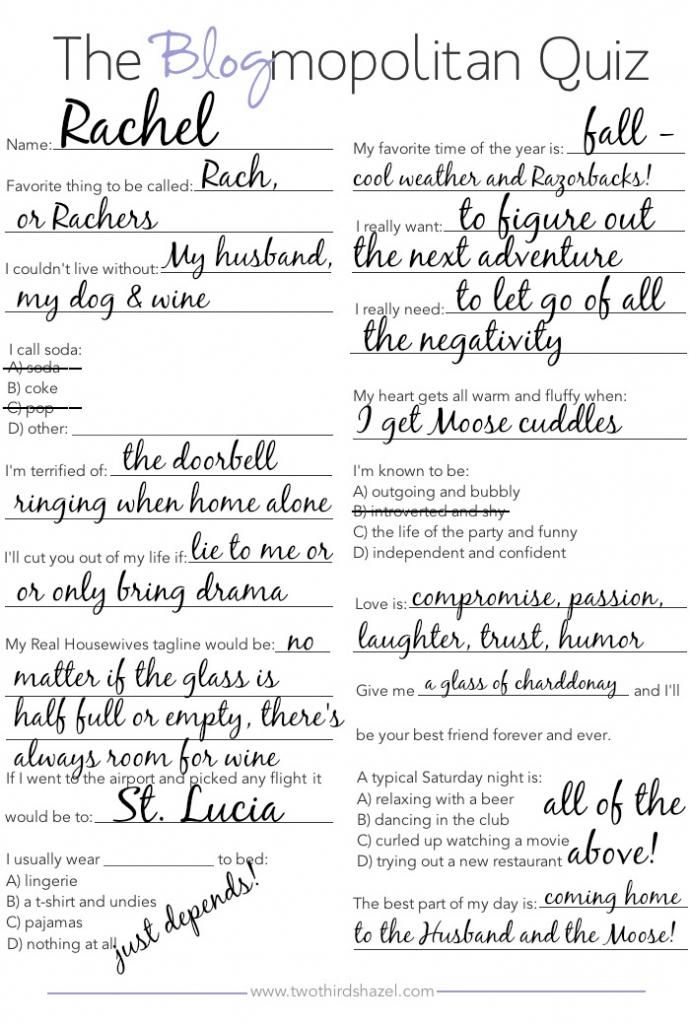 The Blogmopolitan Quiz
Name: Rachel
Favorite thing to be called: Rach,
or Rachers
I couldn't live without: My husband,
my dog & wine
I call soda:
A) soda
B) coke
C) pop
D) other:
I'm terrified of: the doorbell
ringing when home alone
I'll cut you out of my life if: lie to me or
or only bring drama
My Real Housewives tagline would be: no
matter if the glass is
half full or empty, there's
always room for wine
If I went to the airport and picked any flight it
would be to: St. Lucia
I usually wear ______________ to bed:
A) lingerie
B) a t-shirt and undies
C) pajamas
D) nothing at all
just depends!
My favorite time of the year is: fall -
cool weather and Razorbacks!
I really want: to figure out
the next adventure
I really need: to let go of all
the negativity
My heart gets all warm and fluffy when:
I get Moose cuddles
I'm known to be:
A) outgoing and bubbly
B) introverted and shy
C) the life of the party and funny
D) independent and confident
Love is: compromise, passion,
laughter, trust, humor
Give me a glass of charddonay and I'll
be your best friend forever and ever.
A typical Saturday night is:
A) relaxing with a beer
B) dancing in the club
C) curled up watching a movie
D) trying out a new restaurant
all of the
above!
The best part of my day is: coming home
to the Husband and the Moose!
www.twothirdshazel.com